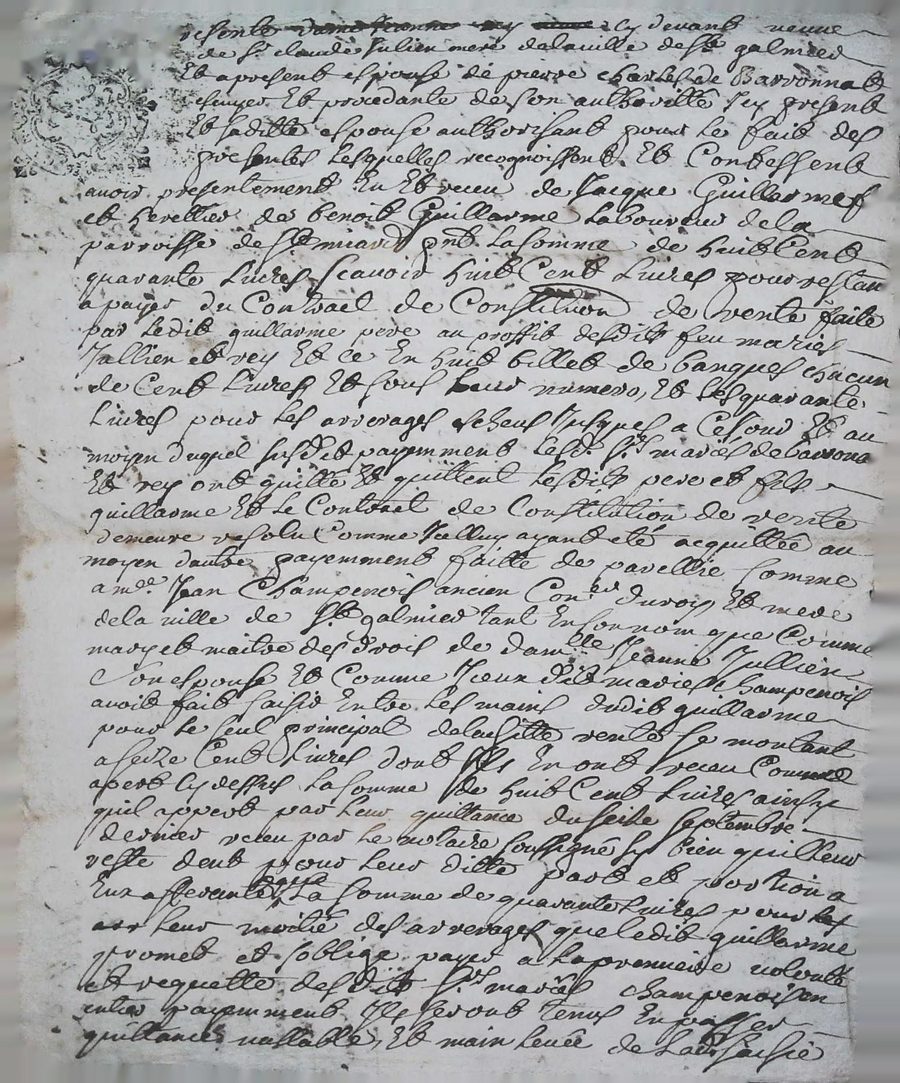 resente dame Jeanne Rey cy devant veuve
de Sr claude Julien mere dela ville de St galmier
Et apresent espouse de pierre charles de Barronnat
escuyer Et procedante de son authorité Icy present
Et laditte espouse authorisant pour le fait des
presentes Lesquelles recognoissent Et Confessent
avoir presentement Eu Et receu de Jacque Guillermet
et herettier de benoit Guillarme Laboureur dela
parroisse de St miard pnt La somme de huit Cent
quarante Livres scavoir huit Cent Livres pour restan
a payer du Contract de Constitution de vente faite
par Ledit guillarme pere au proffit desdits feu maries
Jullien et rey Et ce En huit billet de banques chacun
de Cent Livres Et sous Leur numero, Et Les quarante
Livres pour Les arrerages escheus Jusques a Cejour Et au
moyen duquel susdit payemment Lesd. Srs mariés de barrona
Et rey ont quitté Et quittent Lesdits pere et fils
guillarme Et Le Contract de Constitution de vente
demeure resolu Comme Jcelluy ayant été acquittée au
moyen dautre payemment faitte de parellie somme
a me. Jean Champenois ancien Coner du roy Et mere
dela ville de St galmier tant En son nom que Comme
mary et maitre des drois de damlle Jeanne Jullien
Son espouse Et Comme Jceux dits maries Champenois
avoit fait saisir Entre Les mains dudit guillarme
pour Le seul principal de laditte vente se montant
a seize Cent Livres dont Ils En ont receu Comme
apert cy dessus La somme de huit Cent Livres ainsy
quil appert par Leur quittance du seize septembre
dernier receu par Le notaire soussigne sy bien quil leur
reste deub pour Leur ditte part et portion a
Eux afferante La somme de quarante Livres pour
Leur moitié des arrerages que ledit guillarme
promet et soblige payer a La premiere volonté
et requette desdits Srs mariés champenois En
payemment Ils seront tenus En passer
quittance vallable, Et main Levée de La saisie